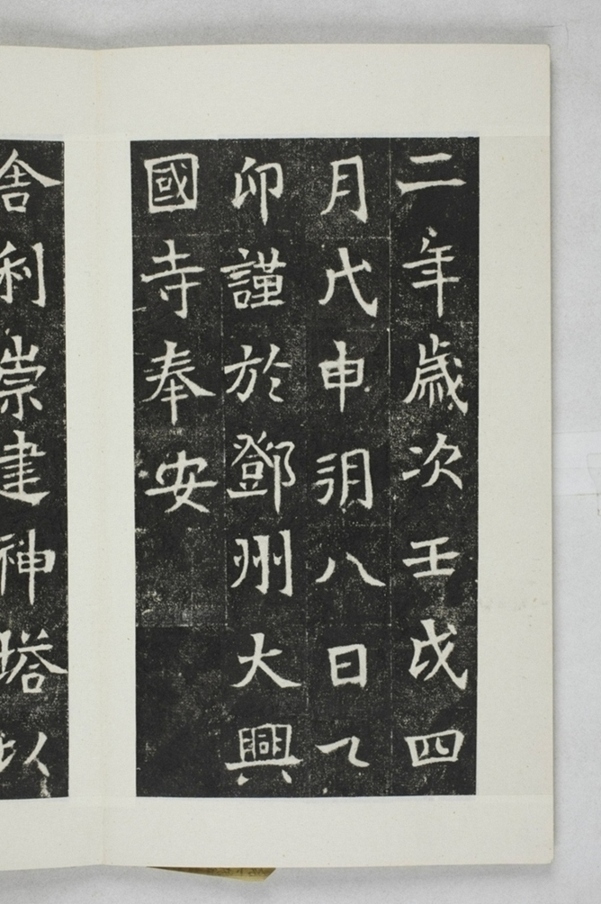 二年歲次壬戌四
月戊申朔八日乙
卯謹於鄧州大興
國寺奉安
舍利崇建神塔以